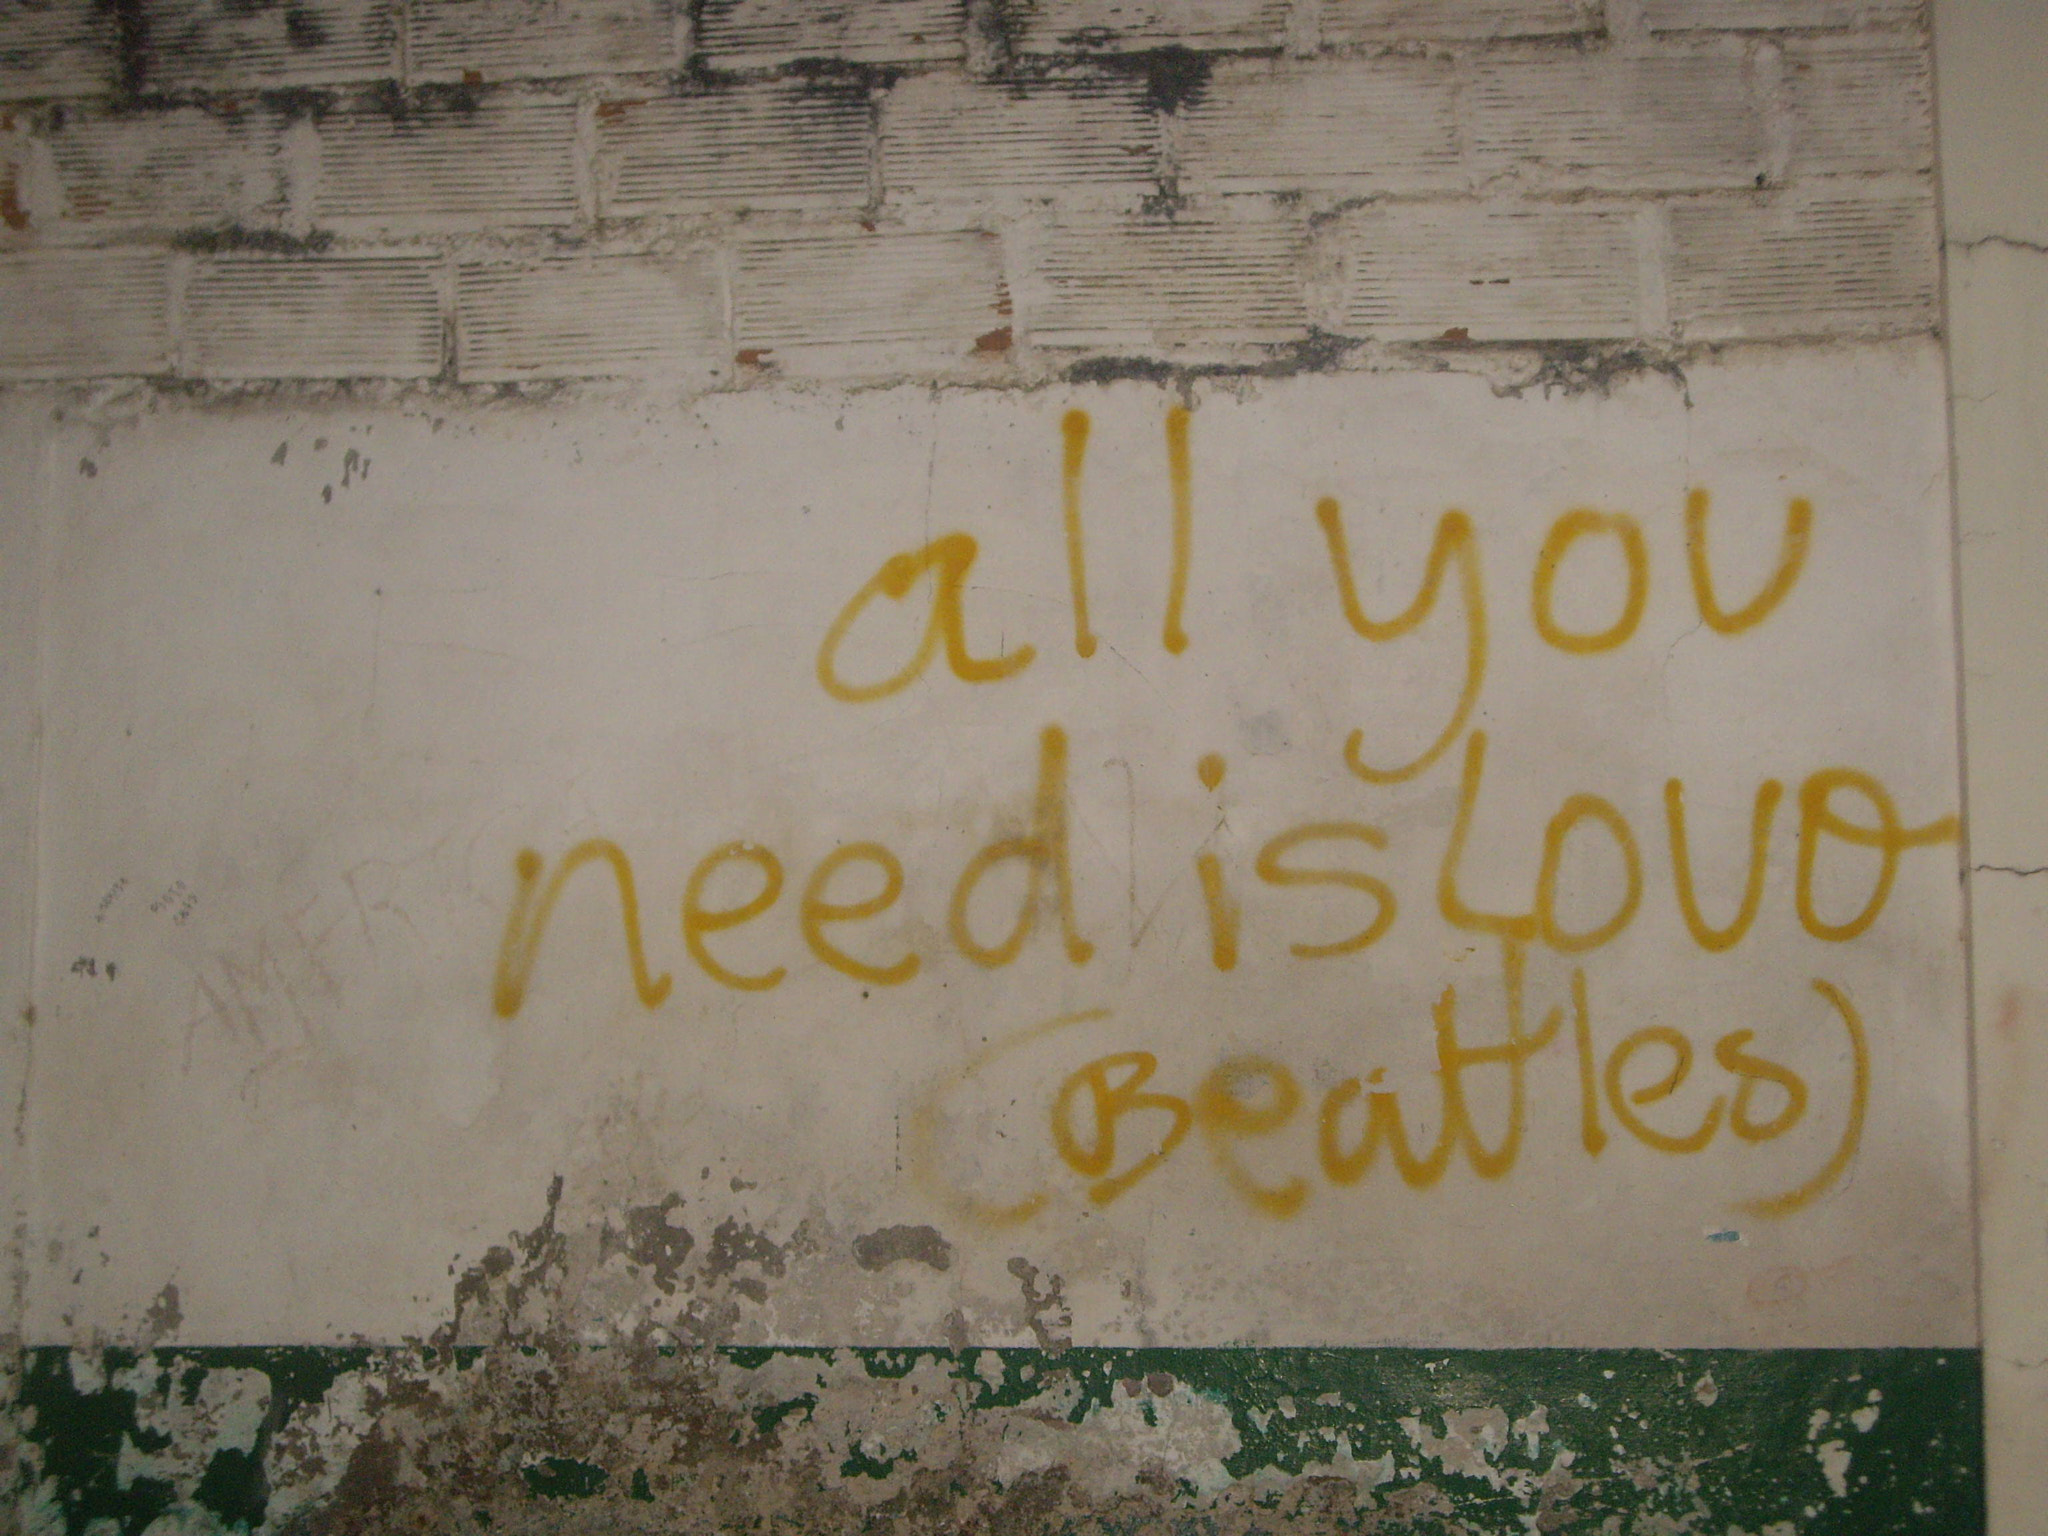 all you
need is Lovo
(Beatles)